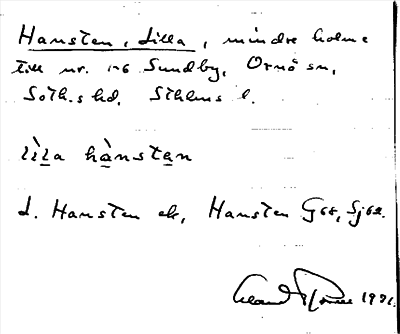 Hansten, Lilla, mindre holme
till nr. 1-6 Sundby, Ornö sn,
Soth.s hd, Sthlms l.
lìla hànstan
d. Hansten ek, Hansten G68, Sj62.
1931.